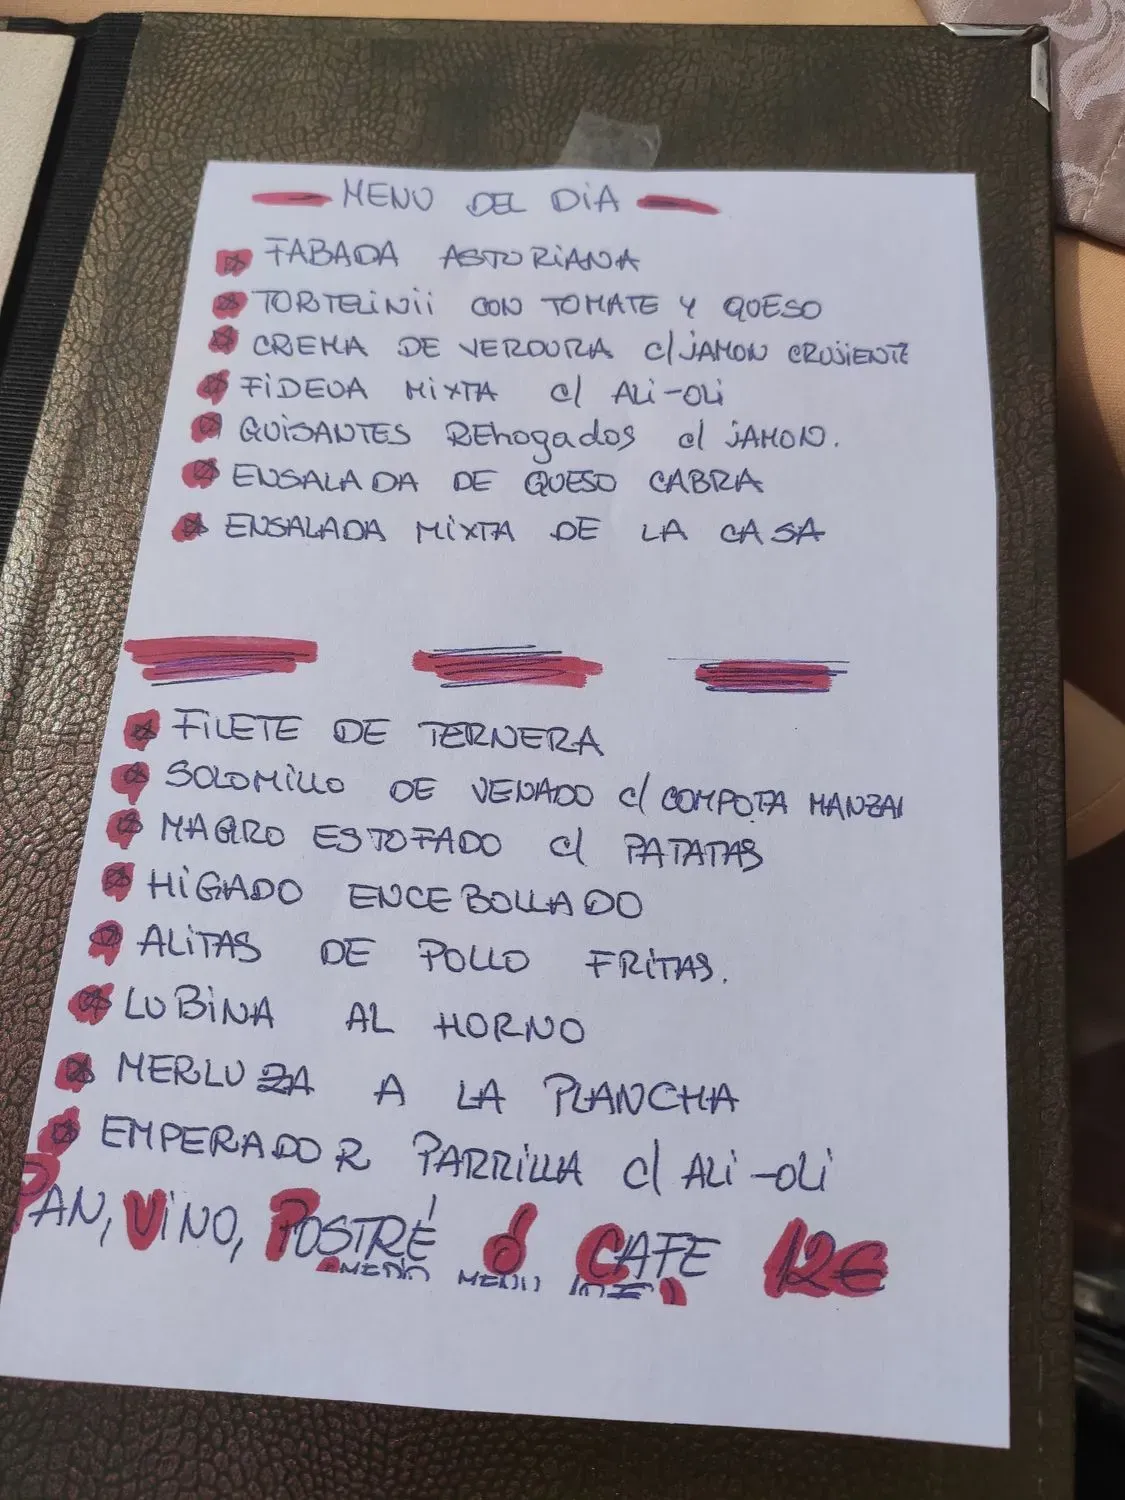 MENU DEL DiA
FABADA ASTURIANA
TORTELiNii CON TOMATE Y QUESO
CREMA DE VERDURA c/JAMON CRUJIENTE
FiDEUA MiXTA c/ ALi-OLi
GUISANTES REhogados c/ JAMON.
ENSALADA DE QUESO CABRA
ENSALADA MiXTA DE LA CASA
FiLETE DE TERNERA
SOLOMILLO DE VENADO c/ COMPOTA MANZA
MAGRO ESTOFADO c/ PATATAS
HiGADO ENCEBOLLADO
ALiTAS DE POLLO FRiTAS.
LUBiNA AL HORNO
MERLUZA A LA PLANCHA
EMPERADOR PARRiLLA c/ ALi-OLi
PAN, ViNO, POSTRÉ ó CAFE 12€
MEDIO MENU